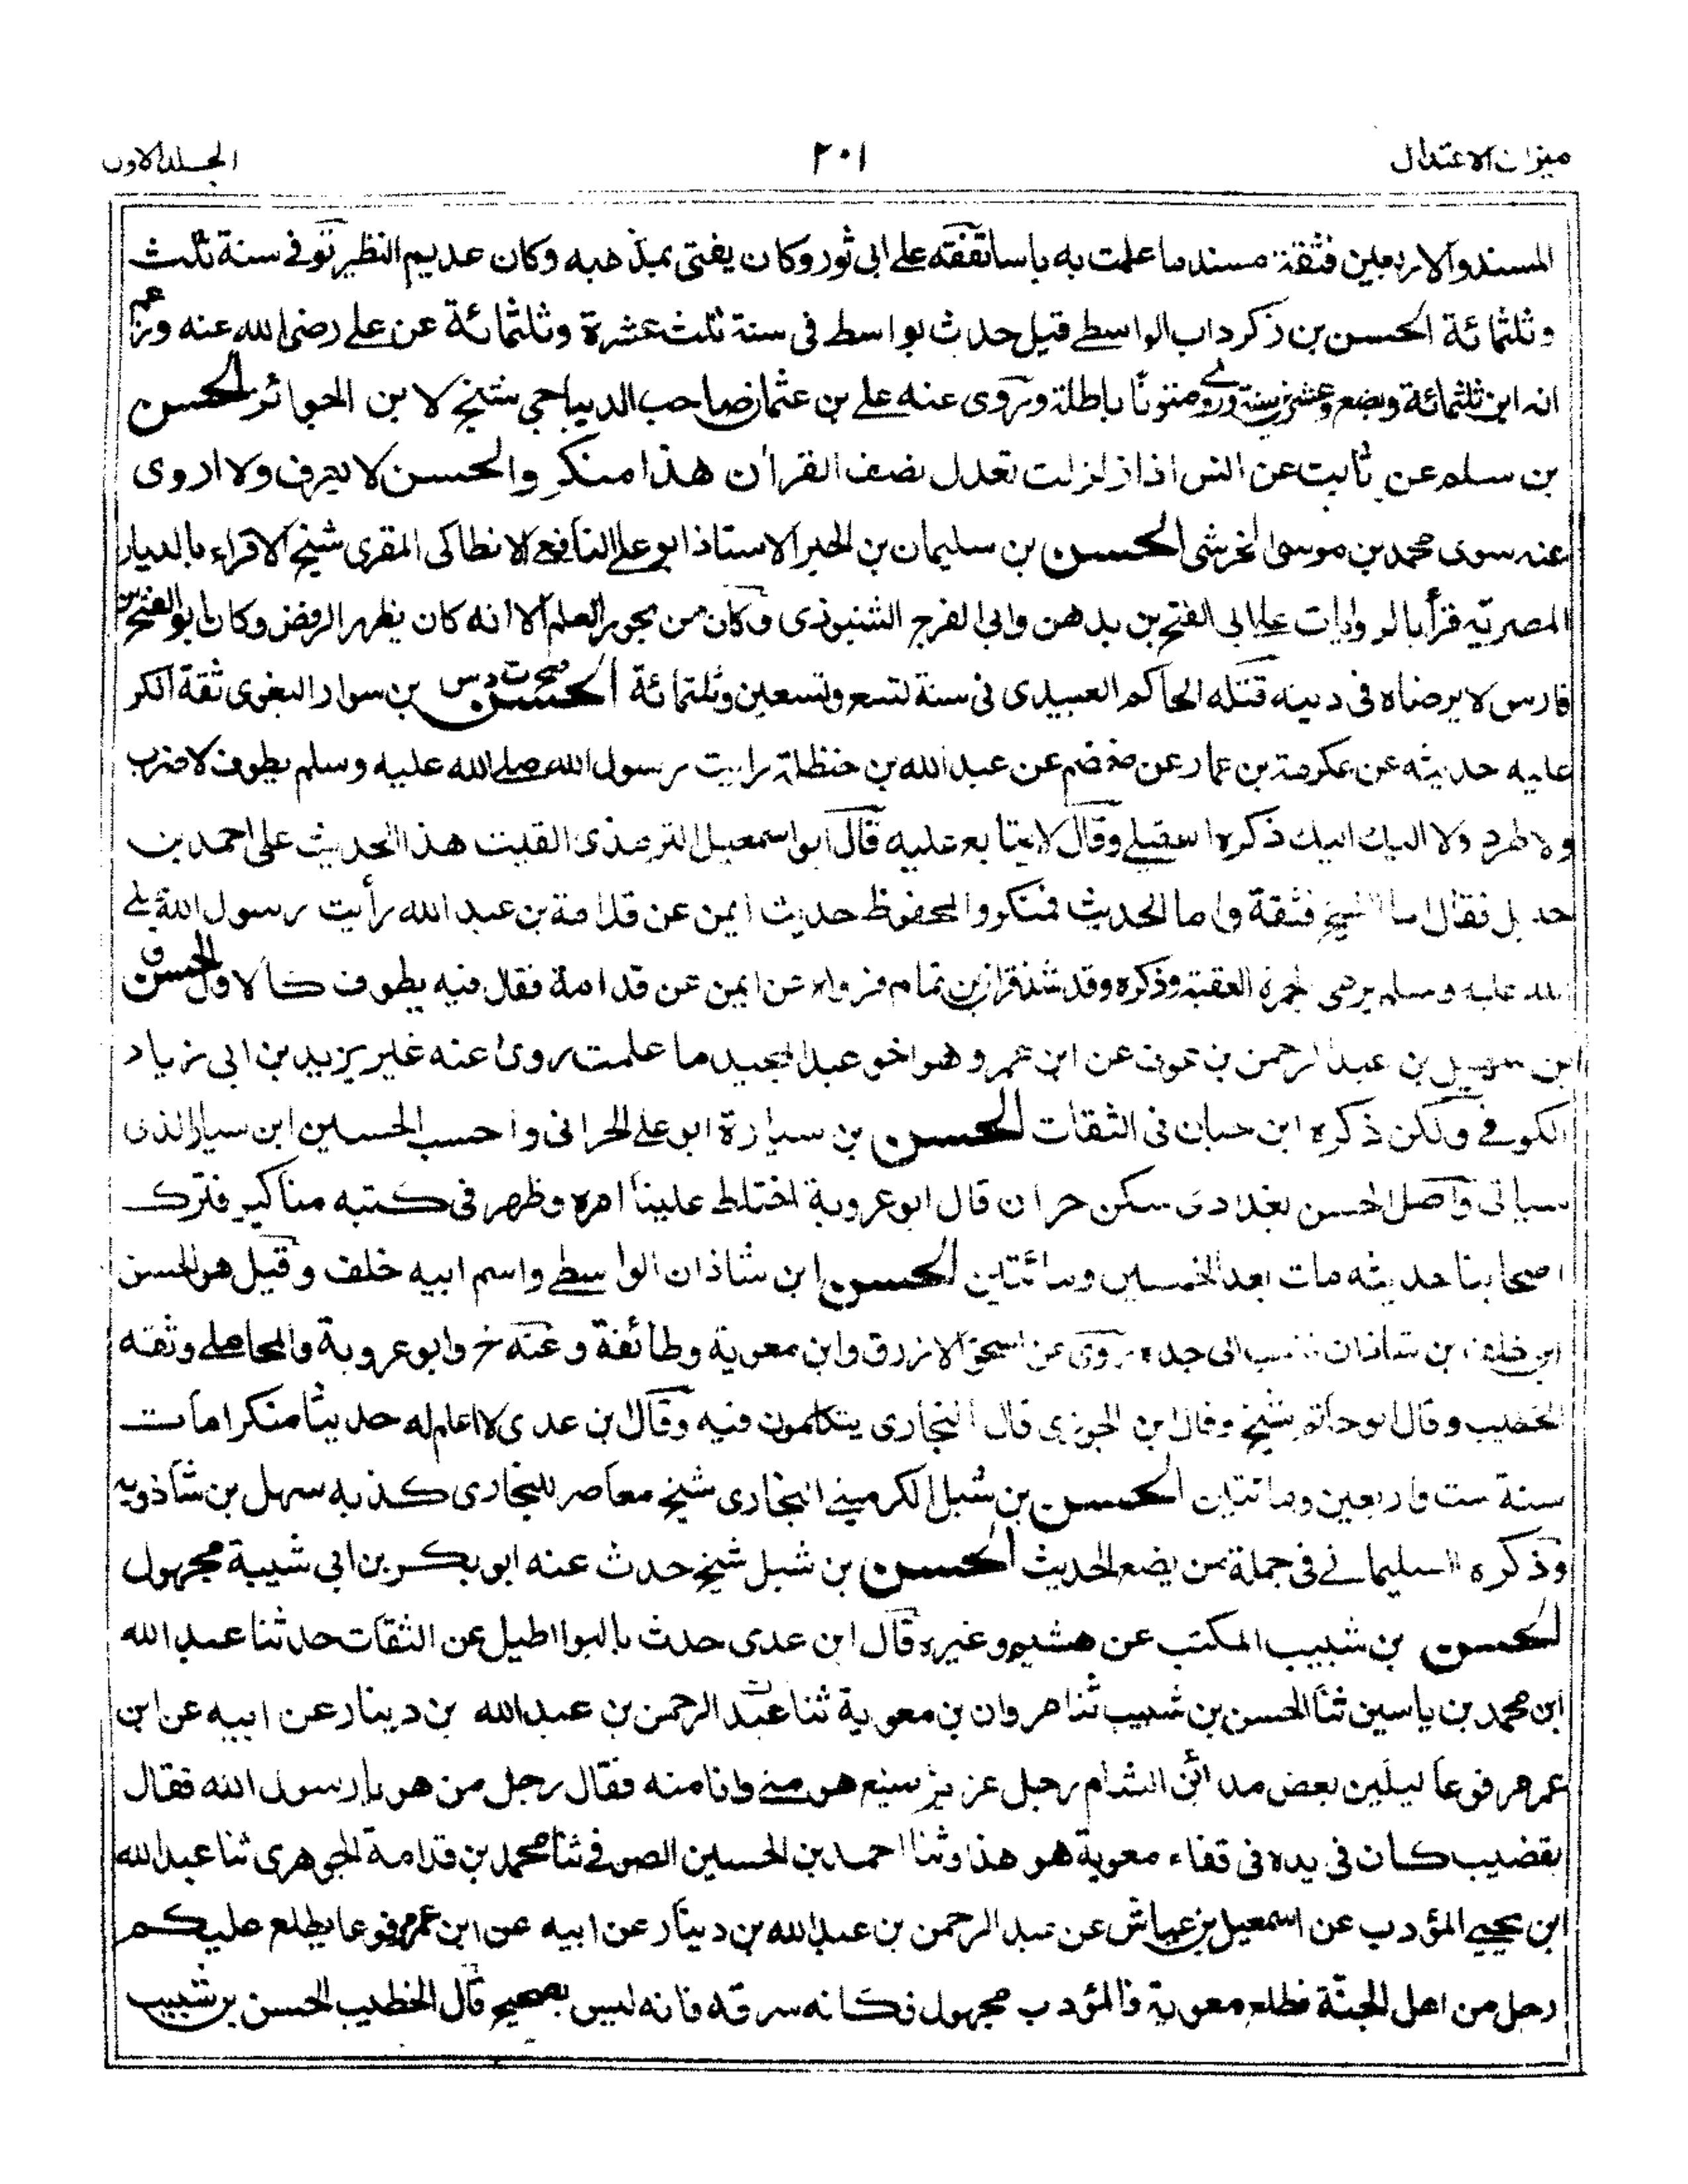 ميزان الاعتدال
٢٠١
الجلد الاول
المسند والاربعين فثقة مسند ما علمت به باسا تفقه على ابى ثور وكان يفتى بمذهبه وكان عديم النظير توفى سنة ثلث
وثلثمائة الحسن بن زكرداب الواسطے قيل حدث بواسط فى سنة ثلث عشرة وثلثمائة عن على رضى الله عنه وزعم
انه ابن ثلثمائة وبضع وعشرين سنة وروى متونًا باطلة وروى عنه على بن عثمان صاحب الديباجى شيخ لابن الحبائز الحسن
بن سلم عن ثابت عن انس اذا زلزلت تعدل نصف القرأن هذا منكر والحسن لا يعرف ولا اروى
عنه سوى محمد بن موسى الخرشى الحسن بن سليمان بن الخير الاستاذ ابو على النافعى الانطاكى المقرى شيخ الاقراء بالديار
المصرية قرأ بالروايات على ابى الفتح بن بدهن وابى الفرج الشنبوذى وكان من بحور العلم الا انه كان يظهر الرفض وكان ابو الفتح بن
فارس لا يرضاه فى دينه قتله الحاكم العبيدى فى سنة تسع وتسعين وثلثمائة الحسن صح ت د س بن سوار البغوى ثقة انكر
عليه حديثه عن عكرمة بن عمار عن ضمضم عن عبد الله بن حنظلة رايت رسول الله صلے الله عليه وسلم يطوف لا ضرب
ولا طرد ولا اليك اليك ذكره العقيلے وقال لا يتابع عليه قال ابو اسمعيل الترمذى القيت هذا الحديث على احمد بن
حنبل فقال اما الشيخ فثقة واما الحديث فمنكر والمحفوظ حديث ايمن عن قدامة بن عبد الله رأيت رسول الله صلے
الله عليه وسلم يرمى الجمرة العقبة وذكره وقد شذ قران بن تمام فرواه عن ايمن عن قدامة فقال فيه يطوف كالاول الحسن ق
ابن سهيل بن عبد الرحمن بن عوف عن ابن عمر وهو اخو عبد المجيد ما علمت روى عنه غير يزيد بن ابى زياد
الكوفے ولكن ذكره ابن حبان فى الثقات الحسن بن سيارة ابو على الحرانى واحسب الحسين ابن سيار الذى
سياتى واصل الحسن بغدادى سكن حران قال ابو عروبة اختلط علينا امره وظهر فى كتبه مناكير فترك
اصحابنا حديثه مات بعد الخمسين ومائتين الحسن ابن شاذان الواسطے واسم ابيه خلف وقيل هو الحسن
ابن خلف بن شاذان نسب الى جده روى عن اسحق الازرق وابن معوية وطائفة وعنه خ وابو عروبة والمحاملے وثقه
الخطيب وقال ابو حاتم شيخ وقال ابن الجوزى قال البخارى يتكلمون فيه وقال ابن عدى لا اعلم له حديثا منكرا مات
سنة ست واربعين ومائتين الحسن بن شبل الكرمينے البخارى شيخ معاصر للبخارى كذبه سهل بن شاذويه
وذكره السليمانے فى جملة من يضع الحديث الحسن بن شبل شيخ حدث عنه ابو بكر بن ابى شيبة مجهول
الحسن بن شبيب المكتب عن هشيم وغيره قال ابن عدى حدث بالبواطيل عن الثقات حدثنا عبد الله
ابن محمد بن ياسين ثنا الحسن بن شبيب ثنا مروان بن معوية ثنا عبد الرحمن بن عبد الله بن دينار عن ابيه عن ابن
عمر مرفوعا ليلين بعض مدائن الشام رجل عزيز منيع هو منے وانا منه فقال رجل من هو يا رسول الله فقال
بقضيب كان فى يده فى قفاء معوية هو هذا وثنا احمد بن الحسين الصوفے ثنا محمد بن قدامة الجوهرى ثنا عبد الله
ابن يحيے المؤدب عن اسمعيل بن عياش عن عبد الرحمن بن عبد الله بن دينار عن ابيه عن ابن عمر مرفوعا يطلع عليكم
رجل من اهل الجنة فطلع معوية فالمؤدب مجهول فكانه سرقه فانه ليس بصحيح قال الخطيب الحسن بن شبيب